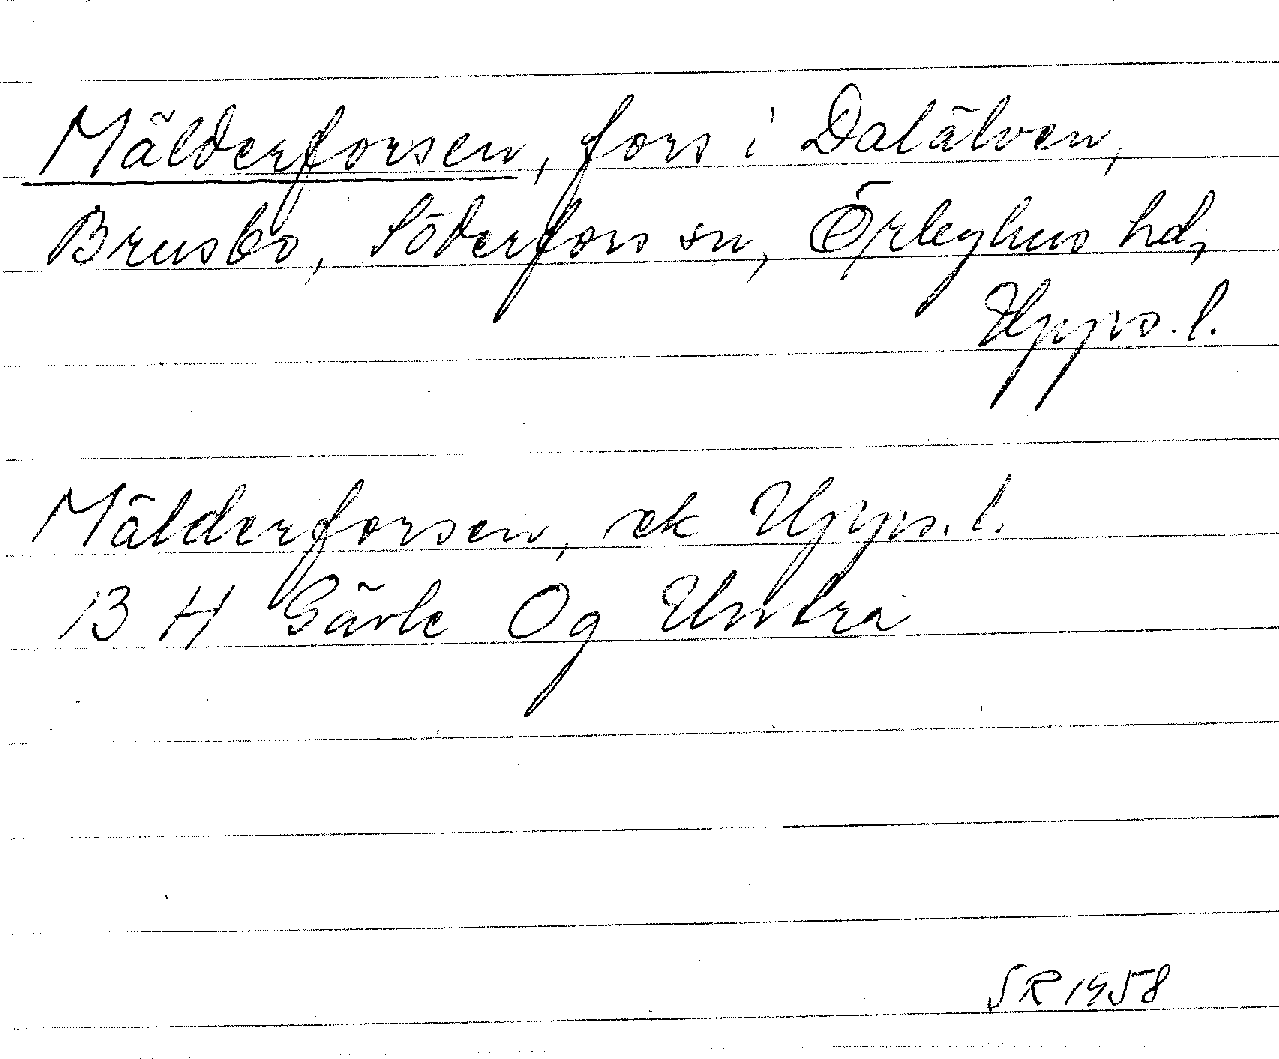 Mälderforsen, fors i Dalälven,
Brusbo, Söderfors sn, Örbyhus hd,
Upps. l.
Mälderforsen, rk Upps. l.
13 H Gävle Og Untra
SR 1958